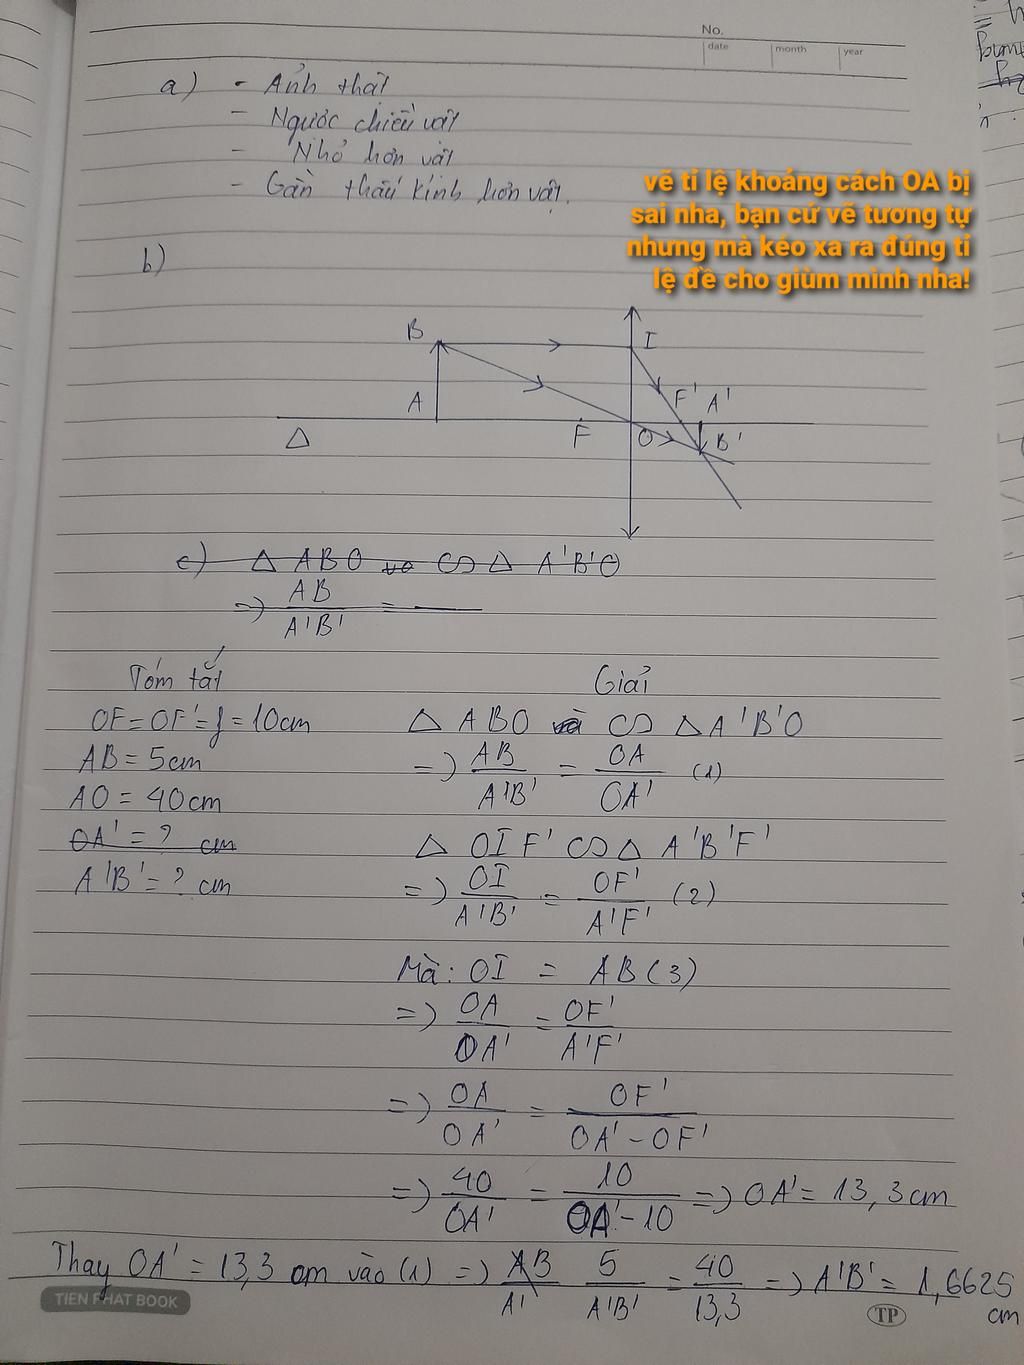 No.
date month year
a) - Ảnh thật
- Ngược chiều vật
- Nhỏ hơn vật
- Gần thấu kính hơn vật.
vẽ tỉ lệ khoảng cách OA bị
sai nha, bạn cứ vẽ tương tự
nhưng mà kéo xa ra đúng tỉ
lệ đề cho giùm mình nha!
b)
B I
A F' A'
Δ F O B'
c) Δ ABO và ∽ Δ A'B'O
=> AB/A'B' =
Tóm tắt
OF = OF' = f = 10cm
AB = 5cm
AO = 40cm
OA' = ? cm
A'B' = ? cm
Giải
Δ ABO và ∽ Δ A'B'O
=> AB/A'B' = OA/OA' (1)
Δ OIF' ∽ Δ A'B'F'
=> OI/A'B' = OF'/A'F' (2)
Mà: OI = AB (3)
=> OA/OA' = OF'/A'F'
=> OA/OA' = OF'/OA' - OF'
=> 40/OA' = 10/OA' - 10 => OA' = 13,3cm
Thay OA' = 13,3 cm vào (1) => AB/A' 5/A'B' = 40/13,3 => A'B' = 1,6625
cm
TIEN PHAT BOOK
TP